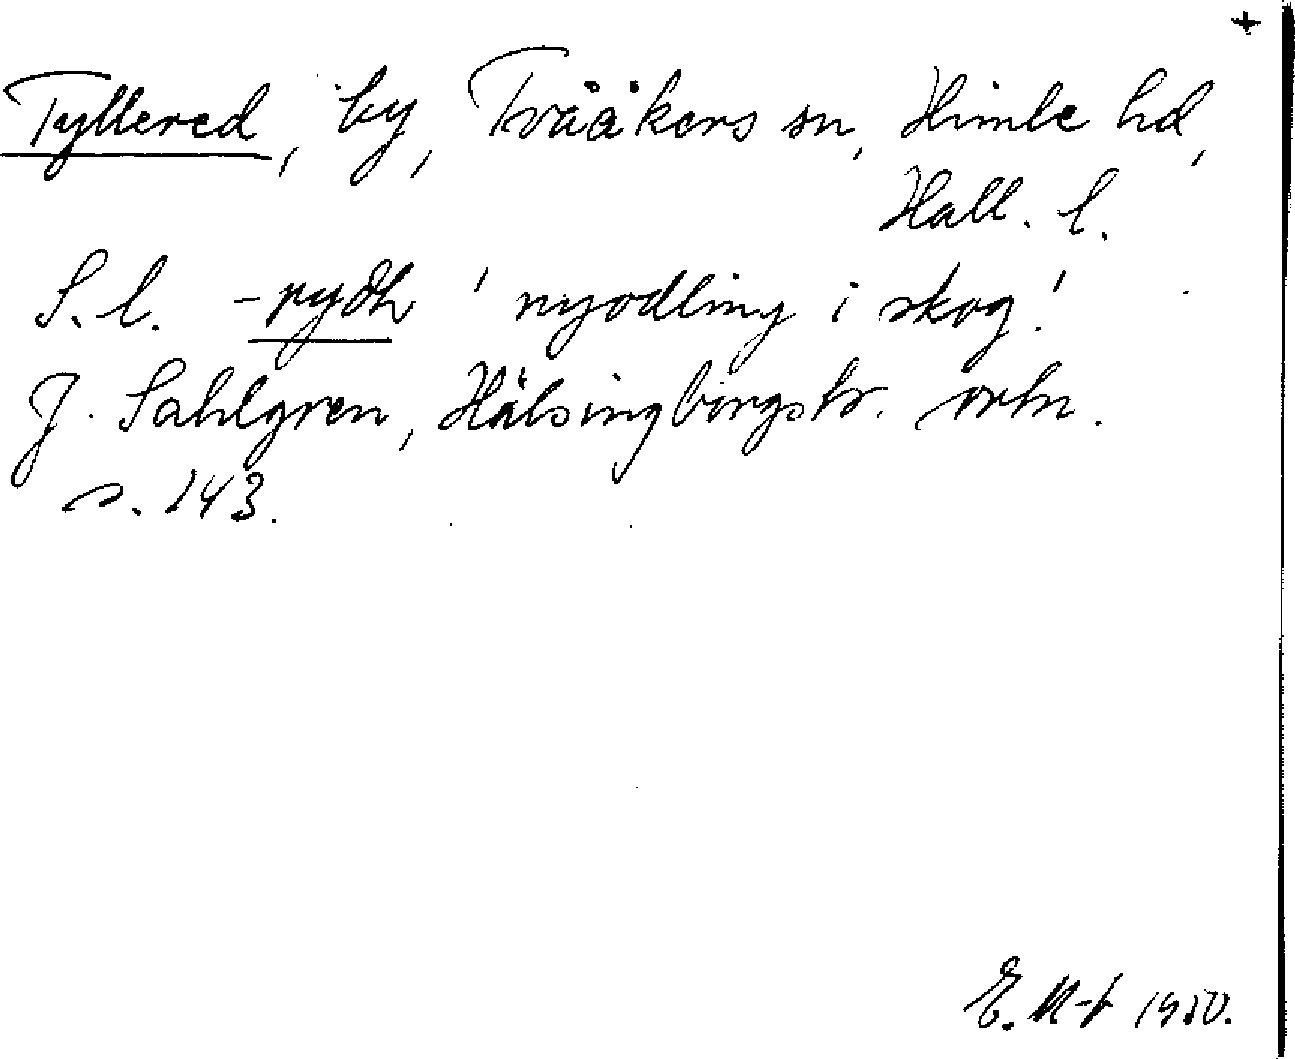 +
Tyllered, by, Tvååkers sn, Himle hd,
Hall. l.
S. l. -rydh 'nyodling i skog'.
J. Sahlgren, Hälsingborgstr. ortn.
s. 143.
E. 1950.